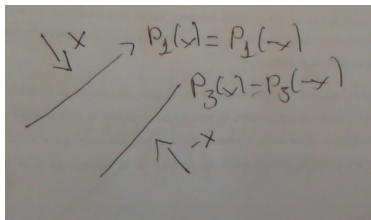 x
P₁(x) = P₁(-x)
P₃(x) = P₃(-x)
-x